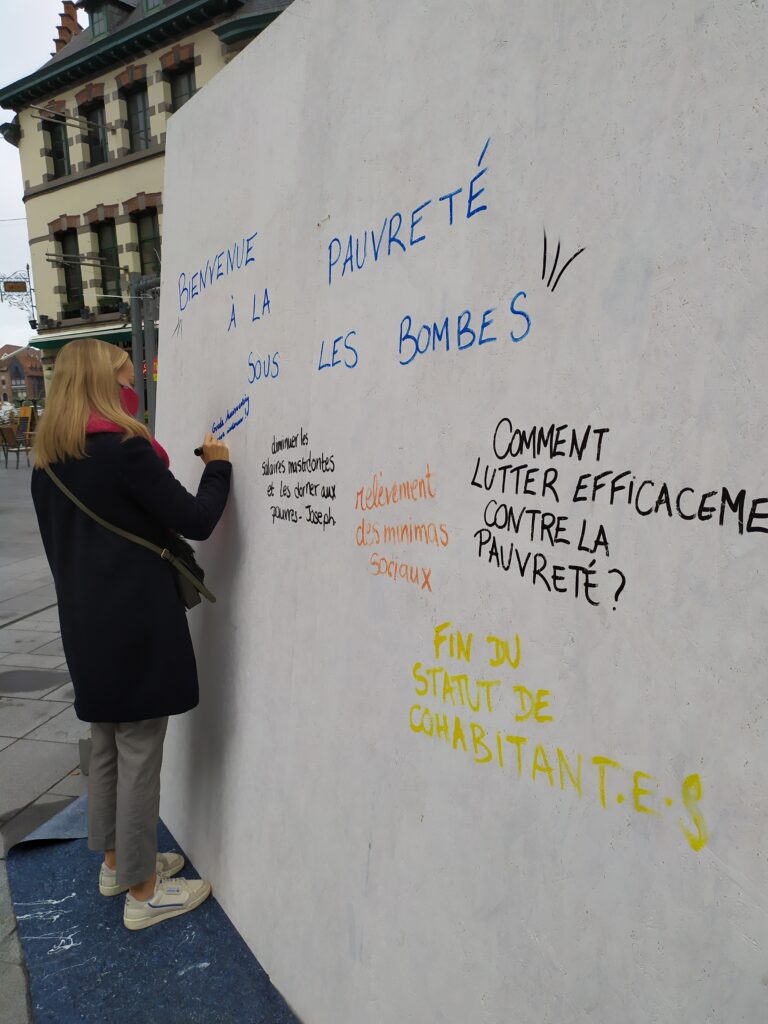 BIENVENUE
À LA
PAUVRETÉ
SOUS LES BOMBES
diminuer les
salaires mastodontes
et les donner aux
pauvres - Joseph
relèvement
des minimas
sociaux
COMMENT
LUTTER EFFICACEME
CONTRE LA
PAUVRETÉ?
FIN DU
STATUT DE
COHABITANT.E.S